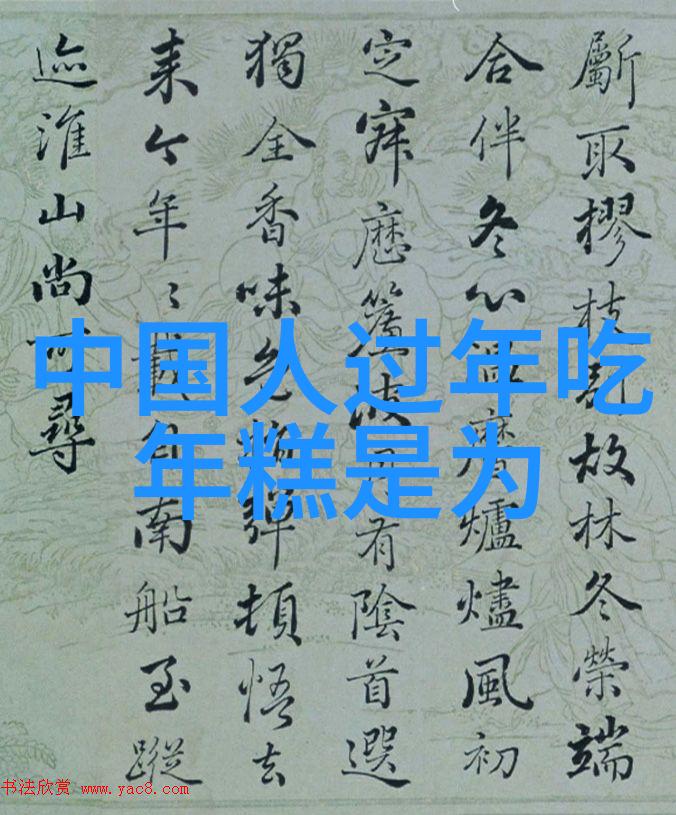 中国人过年吃
年糕是为
斸取樛枝故林冬榮端
合伴冬心溫麐爐燼風初
定寐歷月有陰首選
獨全香味色彈頓悟去
来今年〻載南船至蹤
迹淮山尚可尋
书法欣赏 www.yac8.com